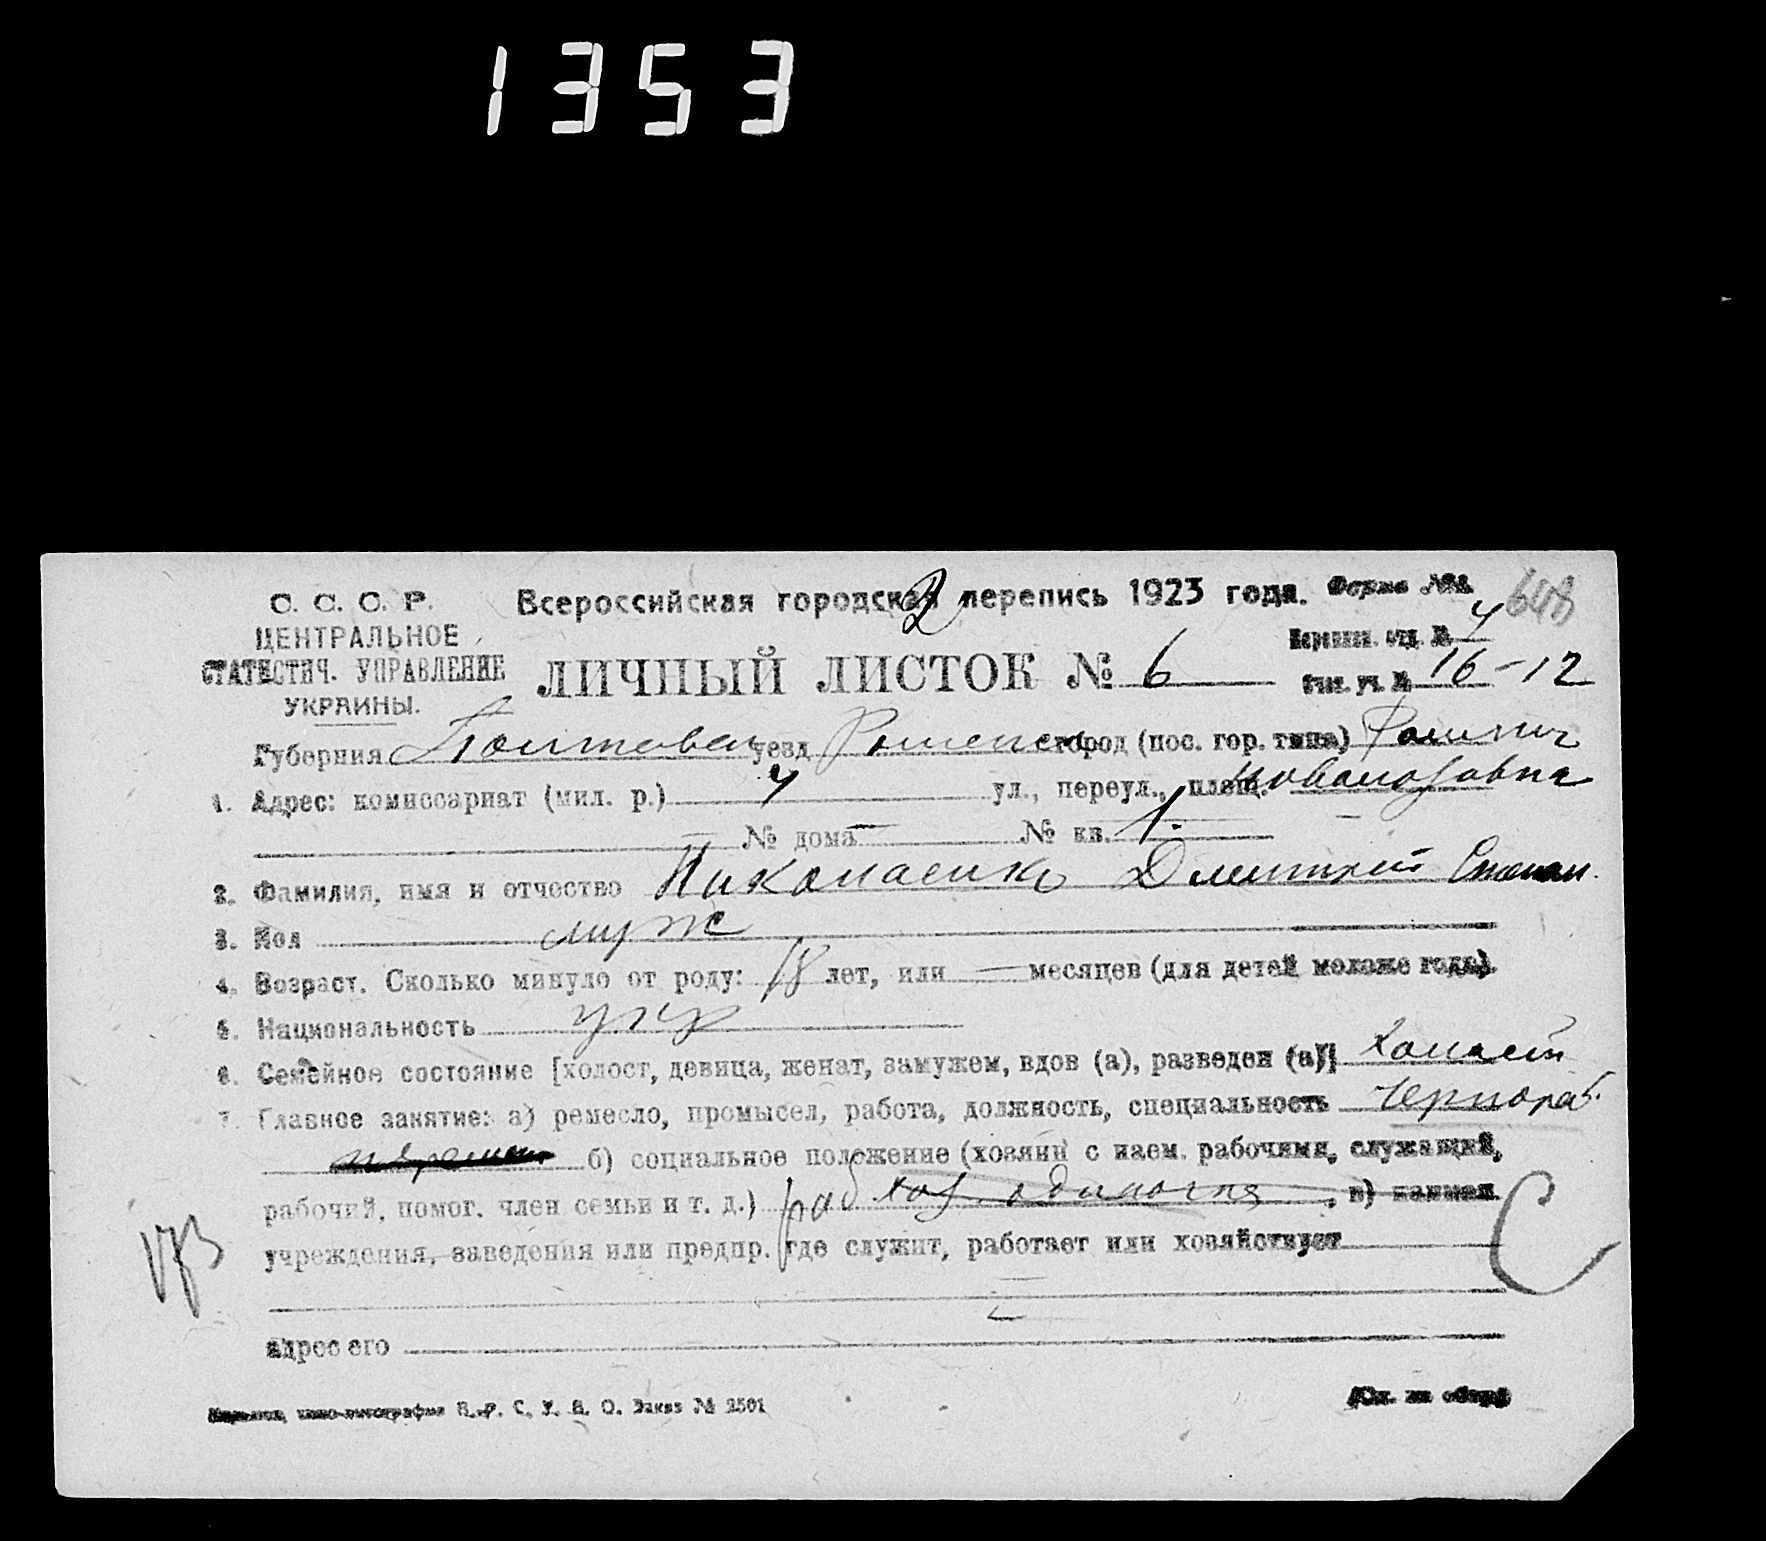 1353
С. С. С. Р.
ЦЕНТРАЛЬНОЕ
СТАТИСТИЧ. УПРАВЛЕНИЕ
УКРАИНЫ.
Всероссийская городская перепись 1923 года. Форма № 648
2
ЛИЧНЫЙ ЛИСТОК № 6
Переписн. отд. № 4
Счет. уч. № 16-12
Губерния Полтавск уезд Роменск город (пос. гор. типа) Ромны
1. Адрес: комиссариат (мил. р.) 4 ул., переул., площ.
— № дома — № кв. 1.
2. Фамилия, имя и отчество Николаенко Дмитрий Степан.
3. Пол муж
4. Возраст. Сколько минуло от роду: 18 лет, или — месяцев (для детей моложе года).
5. Национальность укр
6. Семейное состояние [холост, девица, женат, замужем, вдов (а), разведен (а)] Холост
7. Главное занятие: а) ремесло, промысел, работа, должность, специальность Чернораб.
б) социальное положение (хозяин с наем. рабочими, служащий,
рабочий, помог. член семьи и т. д.) раб хоз. одиночка, в) наимен.
учреждения, заведения или предпр. где служит, работает или хозяйствует
адрес его
173
С
Заказ № 2501
(См. на обор.)